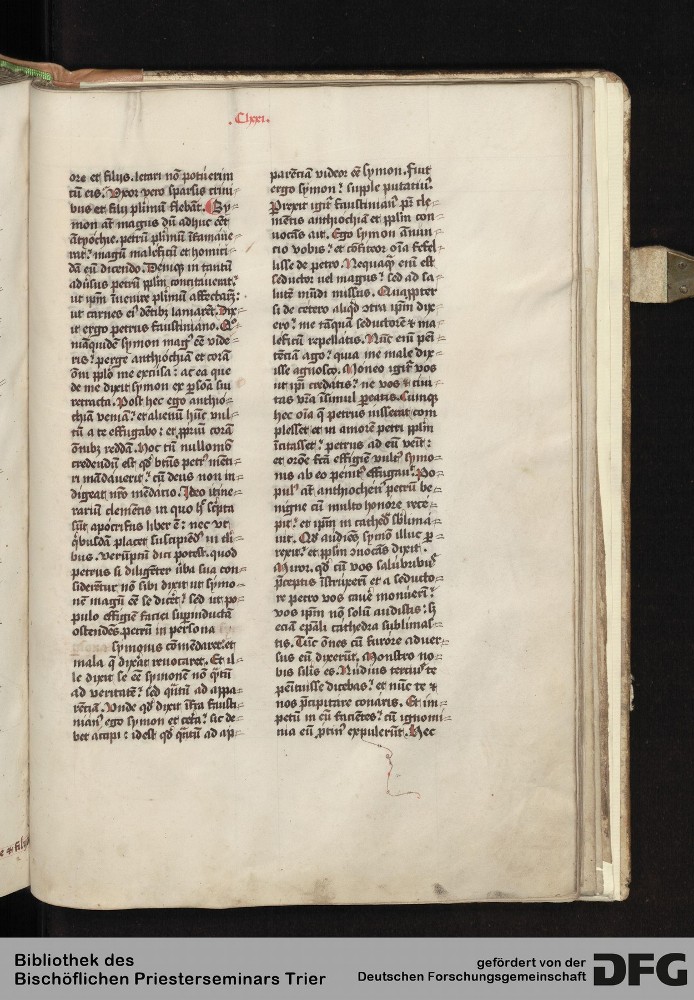 .Clxxi.
ore et filijs. letari nō potuerim
tū eis. Vxor vero sparsis crini-
bus et filij plimū flebāt. Sy-
mon at magus dū adhuc eēt
āthyochie. petrū plimū ifamaue-
rat. magū maleficū et homici-
dā eū dicendo. Deniqꝫ in tantū
adūsus petrū pplm concitauerat.
ut ipm īuenire plimū affectarēt:
ut carnes ei' dētibꝫ laniarēt. Dix-
it ergo petrus faustiniano. Qm
nāquidē symon mag' eē vide-
ris. perge anthiochiā et corā
om̄i pplo me excusa: ac ea que
de me dixit symon ex psōa sui
retracta. Post hec ego anthio-
chiā veniā. et alienū hūc vul-
tū a te effugabo: et pprium corā
om̄ibꝫ reddā. Hoc tn̄ nullomō
credendū est qd btūs petr' menti-
ri mādauerit. cū deus non in-
digeat nr̄o mēdacio. Ideo itine-
rarium clementis in quo h' scripta
sūt apocrifus liber ē: nec ut
qbusdā placet suscipiēd' in tali-
bus. Verūptn̄ dici potest. quod
petrus si diligēter ūba sua con-
siderētur nō sibi dixit ut symo-
nē magū eē se dicēt. sed ut po-
pulo effigiē faciei suꝑinductā
ostendēs petrū in persona
symonis cōmēdaret. et
mala q dixāt reuocaret. Et il-
le dixit se eē symonē nō qtū
ad veritatē. sed qntū ad appa-
rētiā. Vnde qd dixit ifra fausti-
nian' ego symon et cetā. sic de-
bet accipi: idest qd qntū ad ap-
parētiā videor eē symon. Fuit
ergo symon. supple putatiue.
Perexit igit faustinian' pr̄ cle-
mētis anthiochiā et pplm con-
uocās ait. Ego symon ānun-
cio vobis. et cōfiteor oīa fefel-
lisse de petro. Nequaqꝫ eni est
seductor uel magus. sed ad sa-
lutē mūdi missus. Quapropter
si de cetero aliqd ɔtra ipm dix-
ero. me tāquā seductorē et ma-
leficū repellatis. Nūc eni pēi-
tētiā ago. quia me male dix-
isse agnosco. Moneo igit' vos
ut ipi credatis. ne vos et ciui-
tas vrā īsimul pereatis. Cumqꝫ
hec oīa q petrus iusserat com
plesset et in amorē petri pplm
īcitasset. petrus ad eū veīt:
et orōne fcā effigiē vult' symo-
nis ab eo penit' effugauit. Po-
pul' at anthiochen' petrū be-
nigne cū multo honore rece-
pit. et ipm in cathed' sblima-
uit. Qd audiēs symō illuc p-
rexit. et pplm ɔuocās dixit.
Miror. qd cū vos salubribus
pceptis istruxerī et a seducto-
re petro vos cauē monuerī.
vos ipm nō solū audistis. s
eciā epāli cathedra sublimas-
tis. Tūc om̄es cū furore aduer-
sus eū dixerūt. Monstro no-
bis silis es. Nudius tercius te
pēituisse dicebas. et nūc te et
nos pcipitare conaris. Et im-
petū in eū faciētes. cū ignomi-
nia eū ptin' expulerūt. Hec
Bibliothek des
Bischöflichen Priesterseminars Trier
gefördert von der
Deutschen Forschungsgemeinschaft
DFG